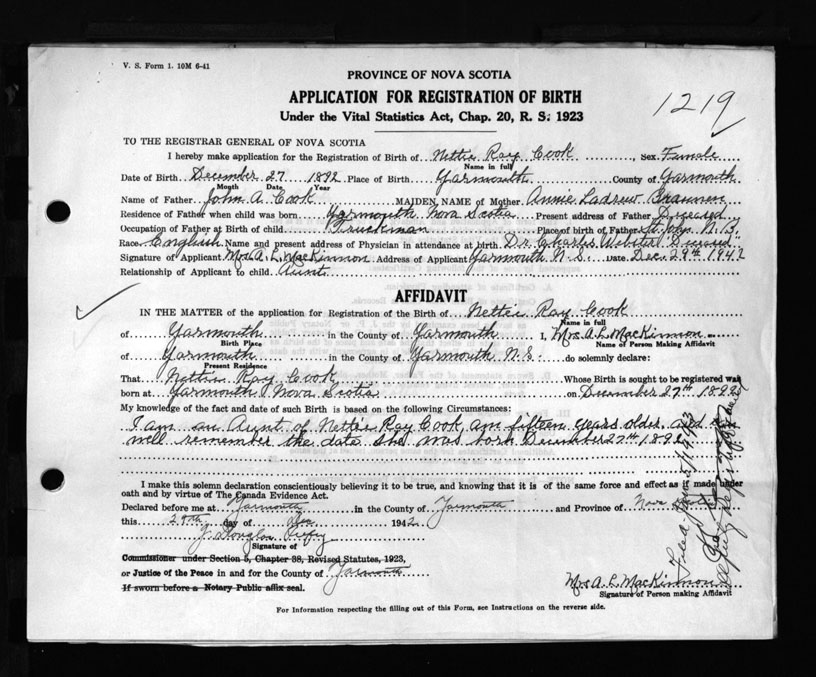 V. S. Form 1. 10M 6-41
PROVINCE OF NOVA SCOTIA
APPLICATION FOR REGISTRATION OF BIRTH
Under the Vital Statistics Act, Chap. 20, R. S. 1923
1219
TO THE REGISTRAR GENERAL OF NOVA SCOTIA
I hereby make application for the Registration of Birth of Nettie Ray Cook, Sex Female
Name in full
Date of Birth December 27 1892 Place of Birth Yarmouth County of Yarmouth
Month Date Year
Name of Father John A. Cook MAIDEN NAME of Mother Annie Ladrew Brannen
Residence of Father when child was born Yarmouth Nova Scotia Present address of Father Deceased
Occupation of Father Truckman Place of birth of Father St. John N. B.
Race English Name and present address of Physician in attendance at birth Dr. Charles Webster "Deceased"
Signature of Applicant Mrs A. L. MacKinnon Address of Applicant Yarmouth N. S. Date Dec. 29th 1942
Relationship of Applicant to child Aunt
AFFIDAVIT
IN THE MATTER of the application for Registration of the Birth of Nettie Ray Cook
Name in full
of Yarmouth in the County of Yarmouth I, Mrs. A. L. MacKinnon
Birth Place Name of Person Making Affidavit
of Yarmouth in the County of Yarmouth N. S. do solemnly declare:
Present Residence
That Nettie Ray Cook Whose Birth is sought to be registered was
born at Yarmouth Nova Scotia on December 27th 1892
My knowledge of the fact and date of such Birth is based on the following Circumstances:
I am an Aunt of Nettie Ray Cook am fifteen years older and
well remember the date she was born December 27th 1892
I make this solemn declaration conscientiously believing it to be true, and knowing that it is of the same force and effect as if made under
oath and by virtue of The Canada Evidence Act.
Declared before me at Yarmouth in the County of Yarmouth and Province of Nova Scotia
this 29th day of Dec 1942
Signature of
Commissioner under Section 5, Chapter 38, Revised Statutes, 1923,
or Justice of the Peace in and for the County of Yarmouth
If sworn before a Notary Public affix seal.
Mrs A. L. MacKinnon
Signature of Person making Affidavit
For Information respecting the filling out of this Form, see Instructions on the reverse side.